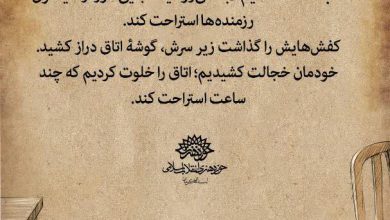 رزمنده‌ها استراحت کند.
کفش‌هایش را گذاشت زیر سرش، گوشهٔ اتاق دراز کشید.
خودمان خجالت کشیدیم؛ اتاق را خلوت کردیم که چند
ساعت استراحت کند.
حوزه هنری انقلاب اسلامی